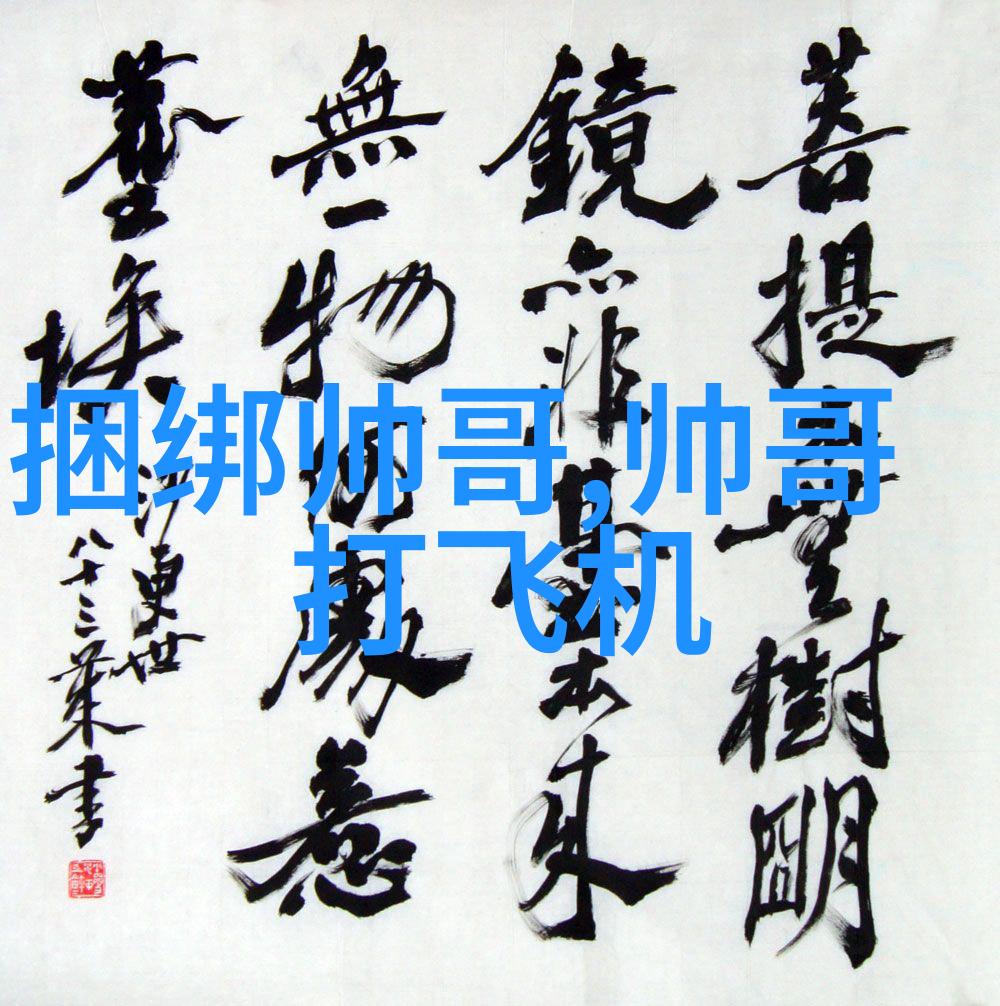 捆绑帅哥,帅哥
打飞机
菩提樹明
鏡亦非臺本来
無一物何處惹
塵埃
沙更世
八十三書